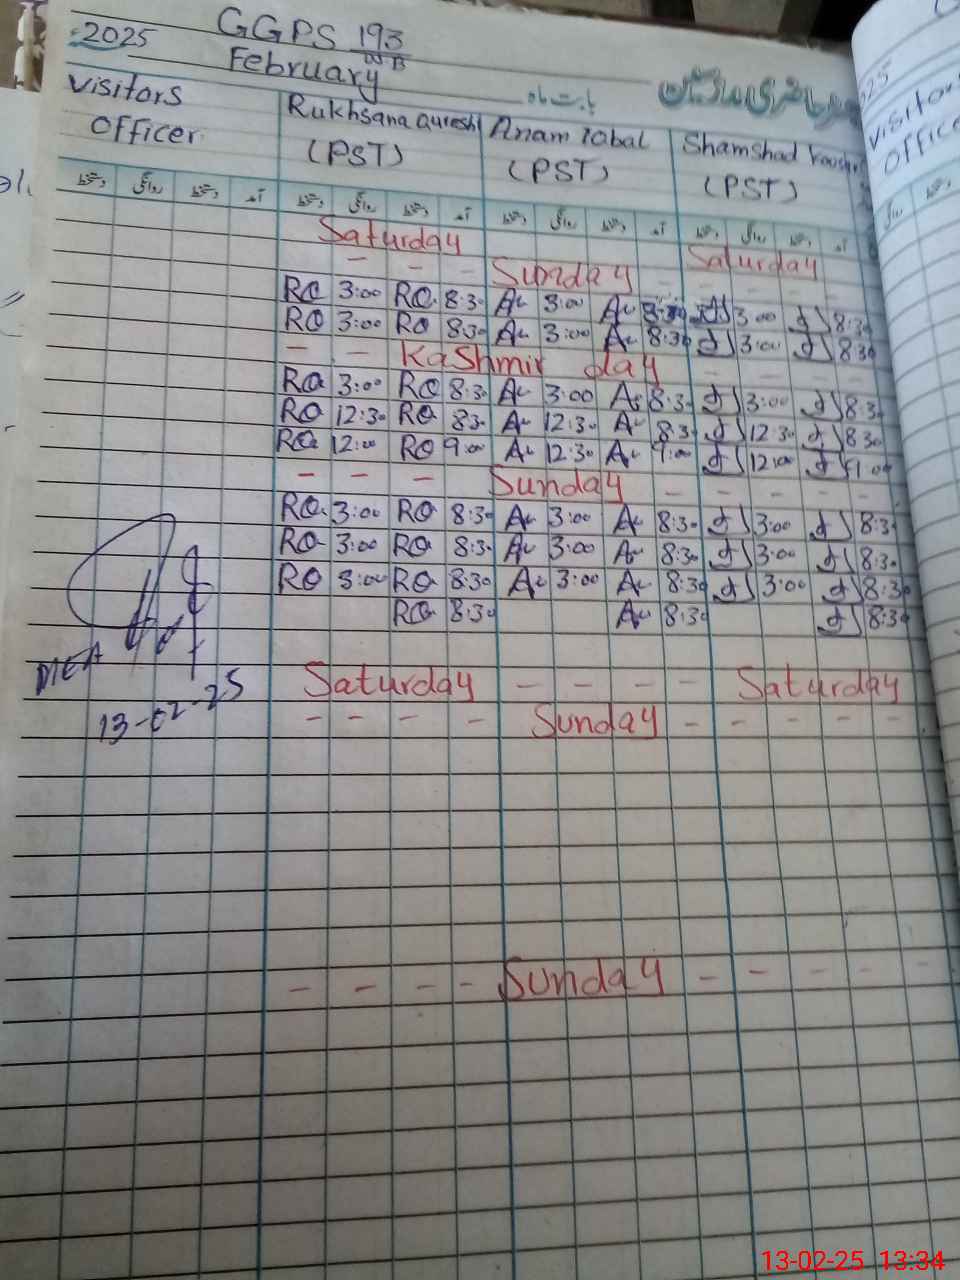 GGPS 193
WB
2025
February
بابت ماہ
حاضری ملازمین
Visitors
Officer
Rukhsana Qureshi
(PST)
Anam Iqbal
(PST)
Shamshad
(PST)
دستخط روانگی دستخط آمد دستخط روانگی دستخط آمد دستخط روانگی دستخط آمد دستخط روانگی دستخط آمد
Saturday Saturday
- - - Sunday - - - - -
RQ 3:00 RQ 8:30 A 3:00 A 3:00 8:30
RQ 3:00 RQ 8:30 A 3:00 A 8:30 3:00 8:30
- - Kashmir day - - - -
RQ 3:00 RQ 8:30 A 3:00 A 8:30 3:00 8:30
RQ 12:30 RQ 8:30 A 12:30 A 8:30 12:30 8:30
RQ 12:00 RQ 9:00 A 12:30 A 9:00 12:00
- - - Sunday - - - - -
RQ 3:00 RQ 8:30 A 3:00 A 8:30 3:00 8:30
RQ 3:00 RQ 8:30 A 3:00 A 8:30 3:00 8:30
RQ 3:00 RQ 8:30 A 3:00 A 8:30 3:00 8:30
RQ 8:30 A 8:30 8:30
MEA
13-02-25
Saturday - - - - Saturday
- - - - Sunday - - - - -
- - - - Sunday - - - - -
2025
Visitors
Office
13-02-25 13:34